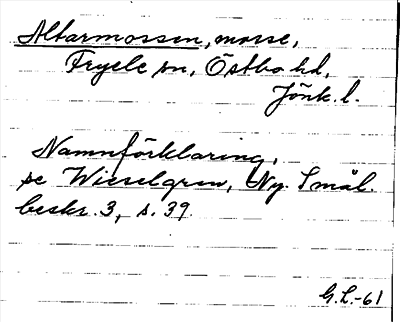 Altarmossen, mosse,
Fryele sn, Östbo hd,
Jönk. l.
Namnförklaring,
se Wieselgren, Ny. Smål.
beskr. 3, s. 39.
G.L.-61